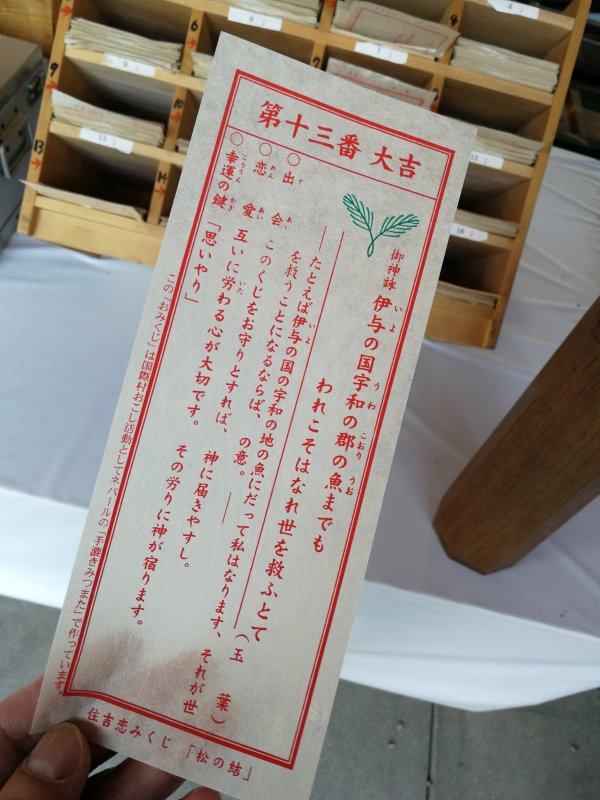 第十三番 大吉
御神詠
伊与の国宇和の郡の魚までも
われこそはなれ世を救ふとて
(玉葉)
―たとえば伊与の国の宇和の地の魚にだって私はなります、それが世
を救うことになるならば、の意。―
○出会 このくじをお守りとすれば、神に届きやすし。
○恋愛 互いに労わる心が大切です。その労りに神が宿ります。
○幸運の鍵 「思いやり」
この「おみくじ」は国際村おこし活動としてネパールの「手漉きみつまた」で作っています。
住吉恋みくじ 「松の結」
4
6
7
9
10
13
13
16